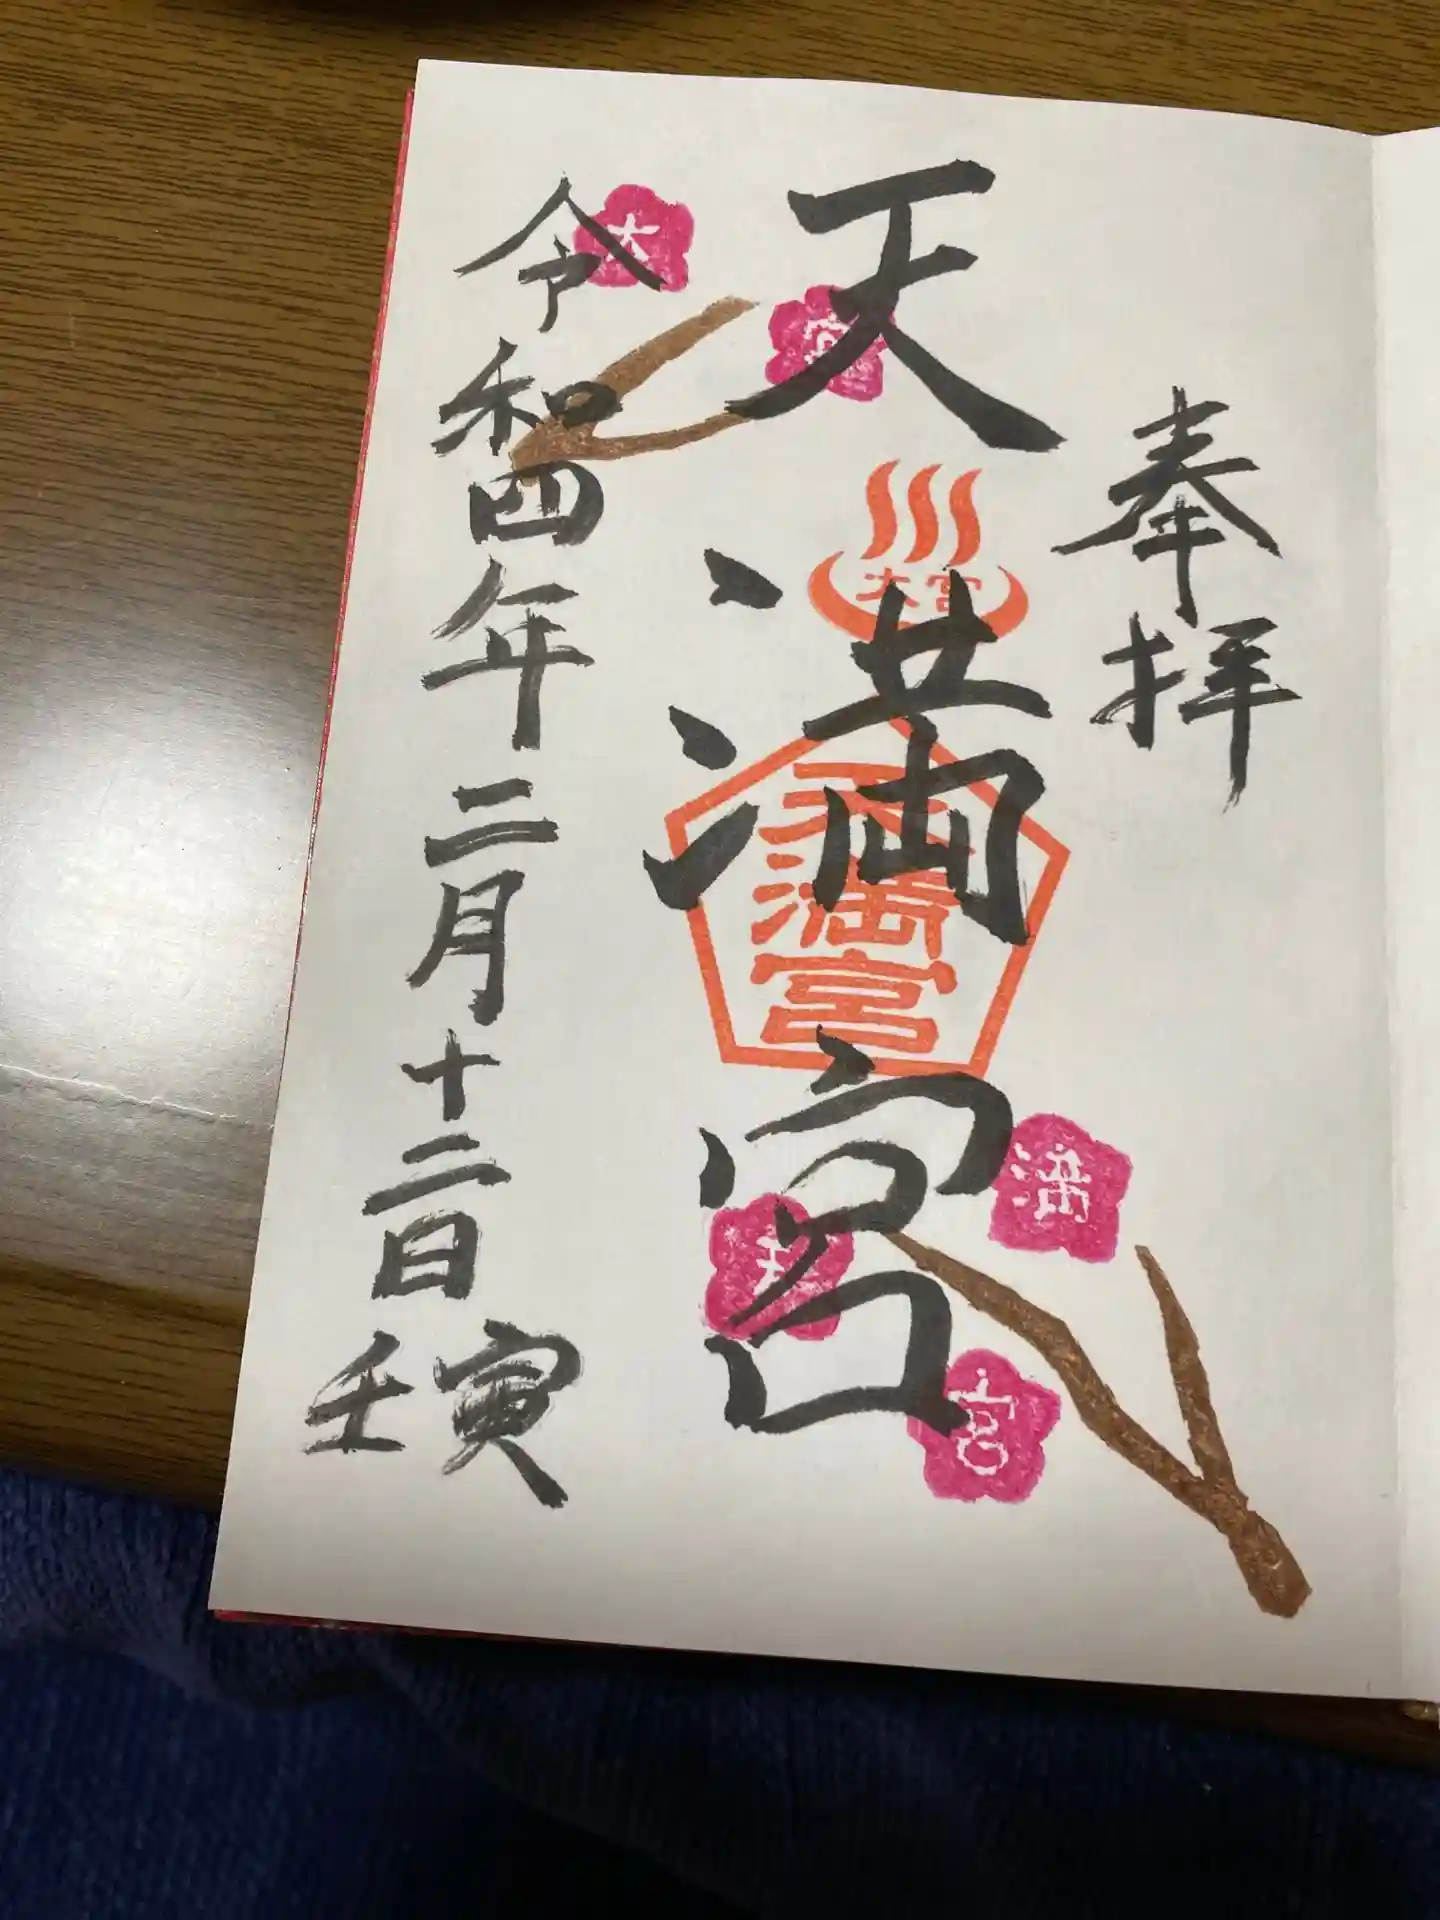 奉拝
天満宮
大宮
天満宮
大
宮
天
満
宮
令和四年二月十二日
壬寅